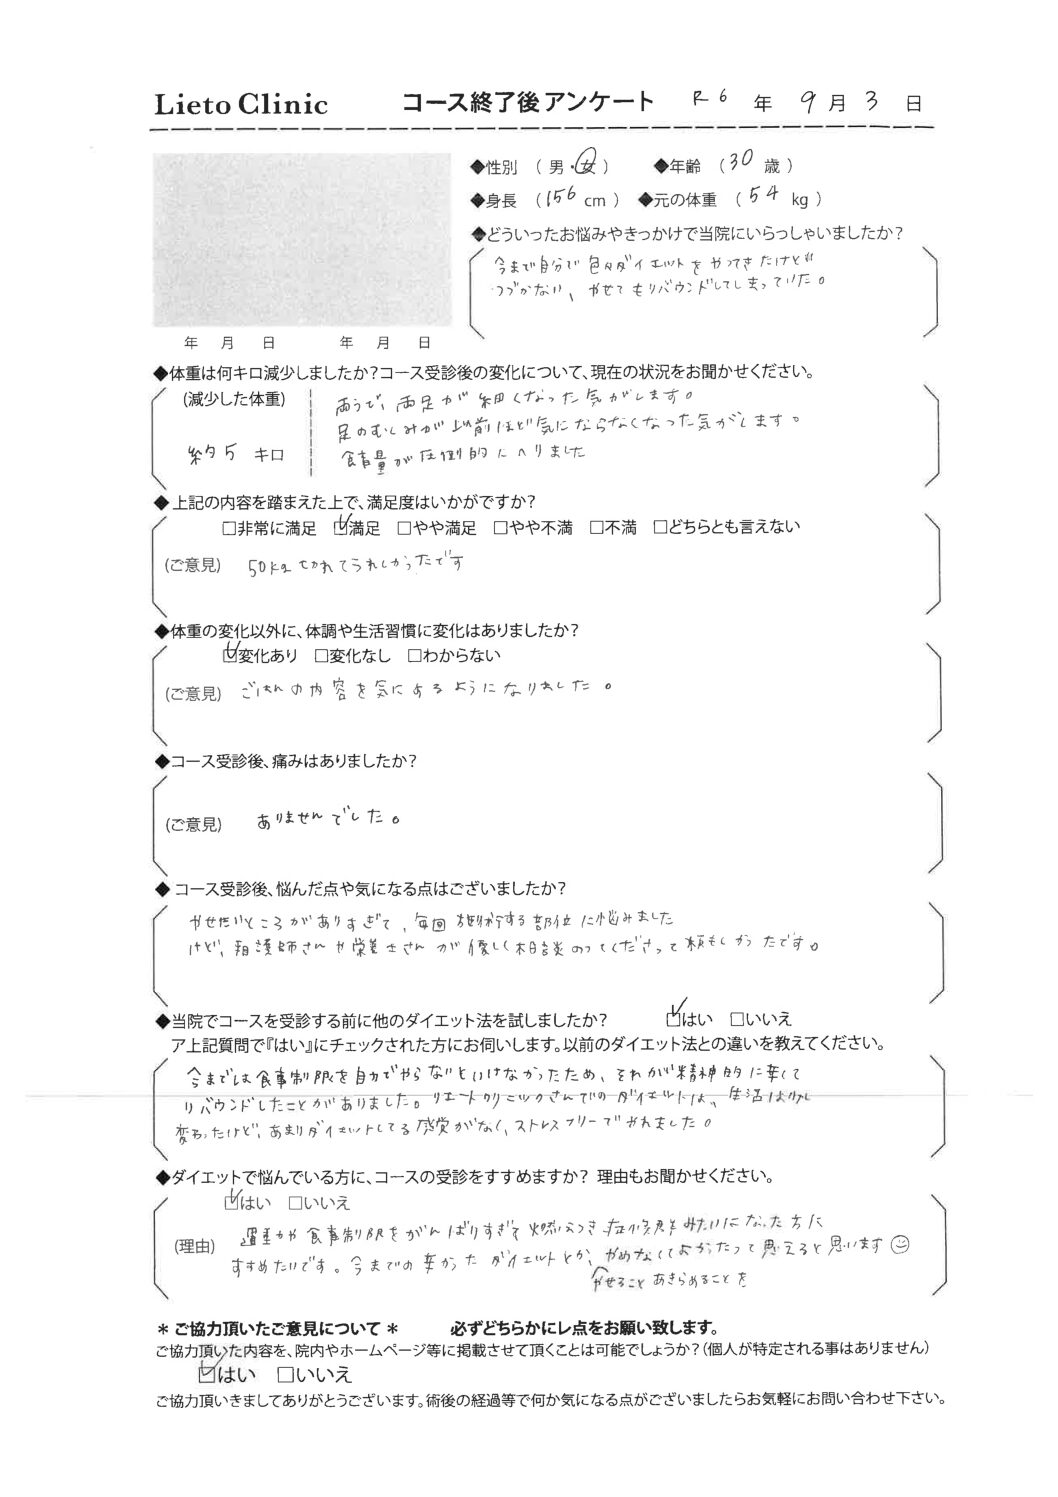 Lieto Clinic コース終了後アンケート R6 年 9 月 3 日
◆性別 （ 男・女 ） ◆年齢 （ 30 歳 ）
◆身長 （ 156 cm ） ◆元の体重 （ 54 kg ）
◆どういったお悩みやきっかけで当院にいらっしゃいましたか？
今まで自分で色々ダイエットをやってきたけど
つづかない、やせてもリバウンドしてしまっていた。
年 月 日 年 月 日
◆体重は何キロ減少しましたか？コース受診後の変化について、現在の状況をお聞かせください。
(減少した体重) 両うで、両足が細くなった気がします。
足のむくみが以前ほど気にならなくなった気がします。
約5 キロ 食事量が圧倒的にへりました
◆ 上記の内容を踏まえた上で、満足度はいかがですか？
□非常に満足 ☑満足 □やや満足 □やや不満 □不満 □どちらとも言えない
(ご意見) 50kg切れてうれしかったです
◆体重の変化以外に、体調や生活習慣に変化はありましたか？
☑変化あり □変化なし □わからない
(ご意見) ごはんの内容を気にするようになりました。
◆コース受診後、痛みはありましたか？
(ご意見) ありませんでした。
◆ コース受診後、悩んだ点や気になる点はございましたか？
やせたいところがありすぎて、毎回 する部位に悩みました
けど、看護師さんや栄養士さんが優しく相談のってくださって頼もしかったです。
◆当院でコースを受診する前に他のダイエット法を試しましたか？ ☑はい □いいえ
ア上記質問で『はい』にチェックされた方にお伺いします。以前のダイエット法との違いを教えてください。
今までは食事制限を自力でやらないといけなかったため、それが精神的に辛くて
リバウンドしたことがありました。リエートクリニックさんでのダイエットは、生活は少し
変わったけど、あまりダイエットしてる感覚がなく、ストレスフリーでやれました。
◆ダイエットで悩んでいる方に、コースの受診をすすめますか？ 理由もお聞かせください。
☑はい □いいえ
(理由) 運動や食事制限をがんばりすぎて燃えつき症候群みたいになった方に
すすめたいです。今までの辛かったダイエットとか、やめなくてよかったって思えると思います☺
やせることあきらめることを
＊ ご協力頂いたご意見について ＊ 必ずどちらかにレ点をお願い致します。
ご協力頂いた内容を、院内やホームページ等に掲載させて頂くことは可能でしょうか？（個人が特定される事はありません）
☑はい □いいえ
ご協力頂いきましてありがとうございます。術後の経過等で何か気になる点がございましたらお気軽にお問い合わせ下さい。